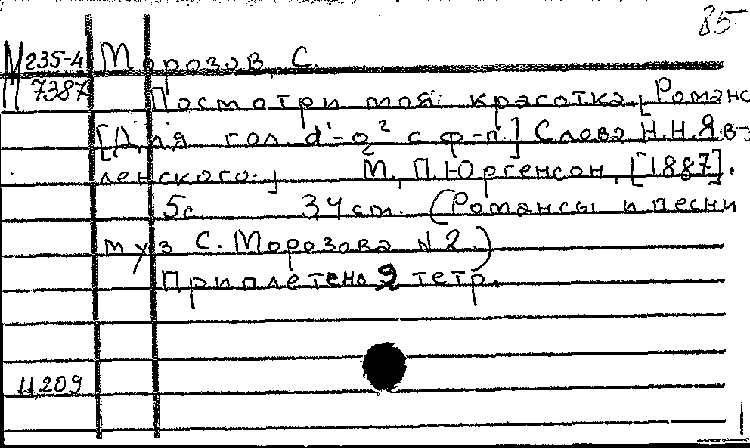 85
М 235-4 Морозов, С.
7387 Посмотри моя красотка. [Романс
[Для гол. d¹-g² с ф-п.] Слова Н.Н.Яв-
ленского.] М., П.Юргенсон, [1887].
5с 34 cm. (Романсы и песни
муз С. Морозова N 2.)
Приплетено 9 тетр.
11209